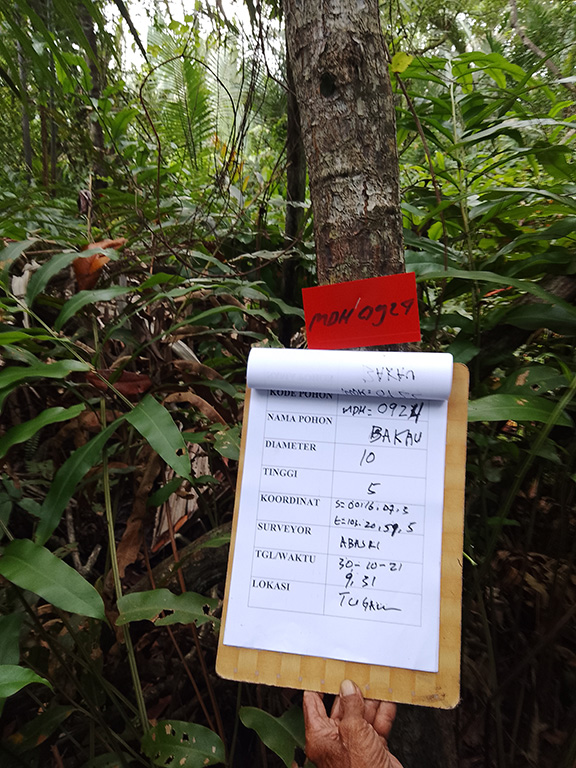 MDH 0924
KODE POHON MDH= 0924
NAMA POHON BAKAU
DIAMETER 10
TINGGI 5
KOORDINAT S=00.16.09.3
E=103.20.59.5
SURVEYOR ABASRI
TGL/WAKTU 30-10-21
9.31
LOKASI